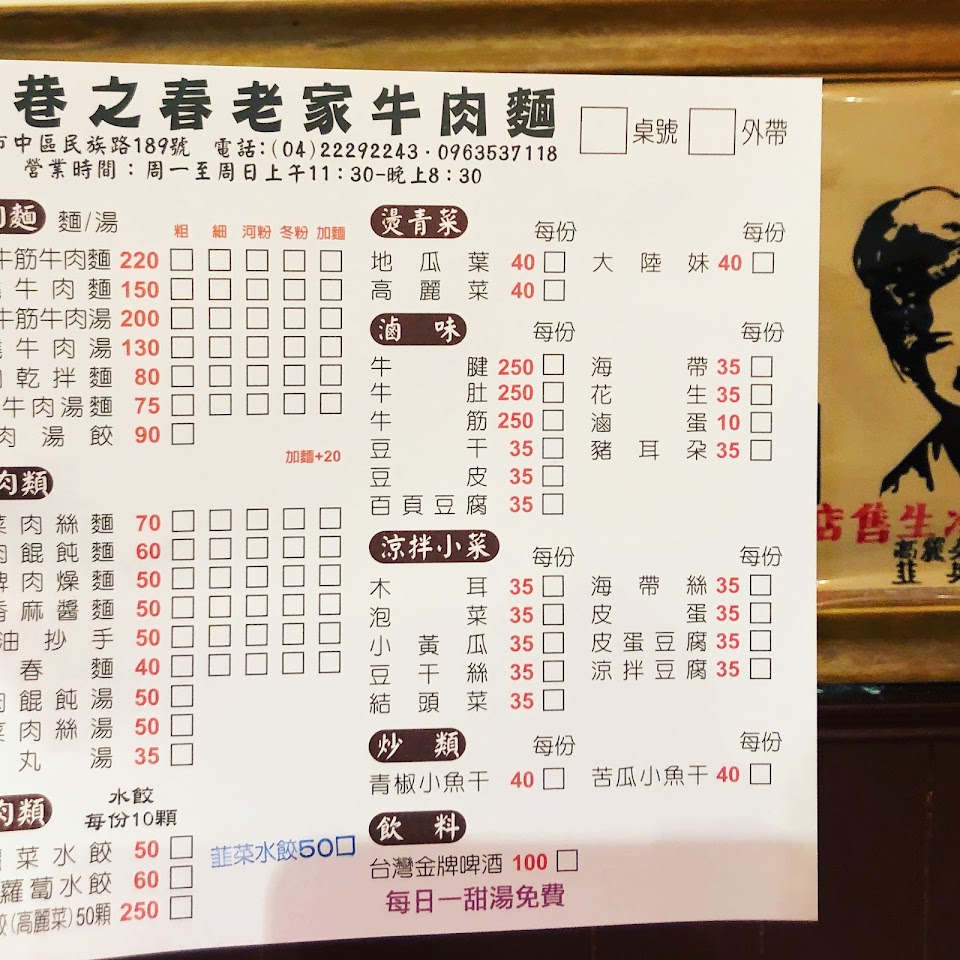 巷之春老家牛肉麵
市中區民族路189號 電話:(04)22292243·0963537118
營業時間:周一至周日上午11:30-晚上8:30
桌號 外帶
麵 麵/湯
粗 細 河粉 冬粉 加麵
牛筋牛肉麵 220
牛肉麵 150
牛筋牛肉湯 200
牛肉湯 130
乾拌麵 80
牛肉湯麵 75
肉湯餃 90
加麵+20
肉類
菜肉絲麵 70
肉餛飩麵 60
肉燥麵 50
麻醬麵 50
油抄手 50
春麵 40
肉餛飩湯 50
菜肉絲湯 50
丸湯 35
肉類 水餃
每份10顆
菜水餃 50
韭菜水餃50
蘿蔔水餃 60
餃(高麗菜)50顆 250
燙青菜 每份 每份
地瓜葉 40 大陸妹 40
高麗菜 40
滷味 每份 每份
牛腱 250 海帶 35
牛肚 250 花生 35
牛筋 250 滷蛋 10
豆干 35 豬耳朵 35
豆皮 35
百頁豆腐 35
涼拌小菜 每份 每份
木耳 35 海帶絲 35
泡菜 35 皮蛋 35
小黃瓜 35 皮蛋豆腐 35
豆干絲 35 涼拌豆腐 35
結頭菜 35
炒類 每份 每份
青椒小魚干 40 苦瓜小魚干 40
飲料
台灣金牌啤酒 100
每日一甜湯免費
店售生
高麗
韭